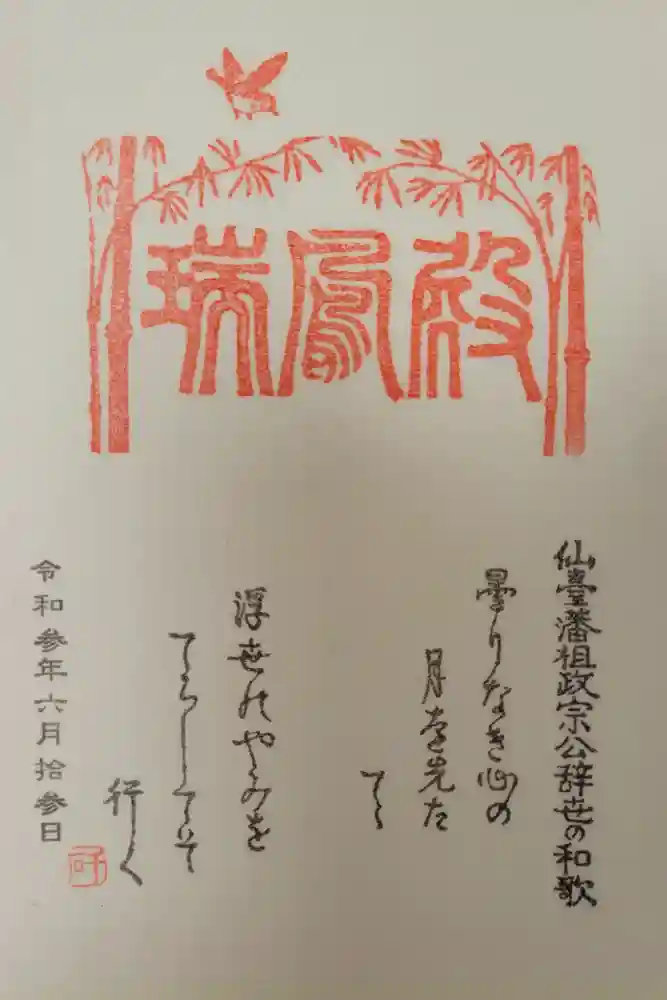 瑞鳳殿
仙臺藩祖政宗公辞世の和歌
曇りなき心の
月を先た
てゝ
浮世のやみを
てらしていて
行く
令和参年六月拾参日